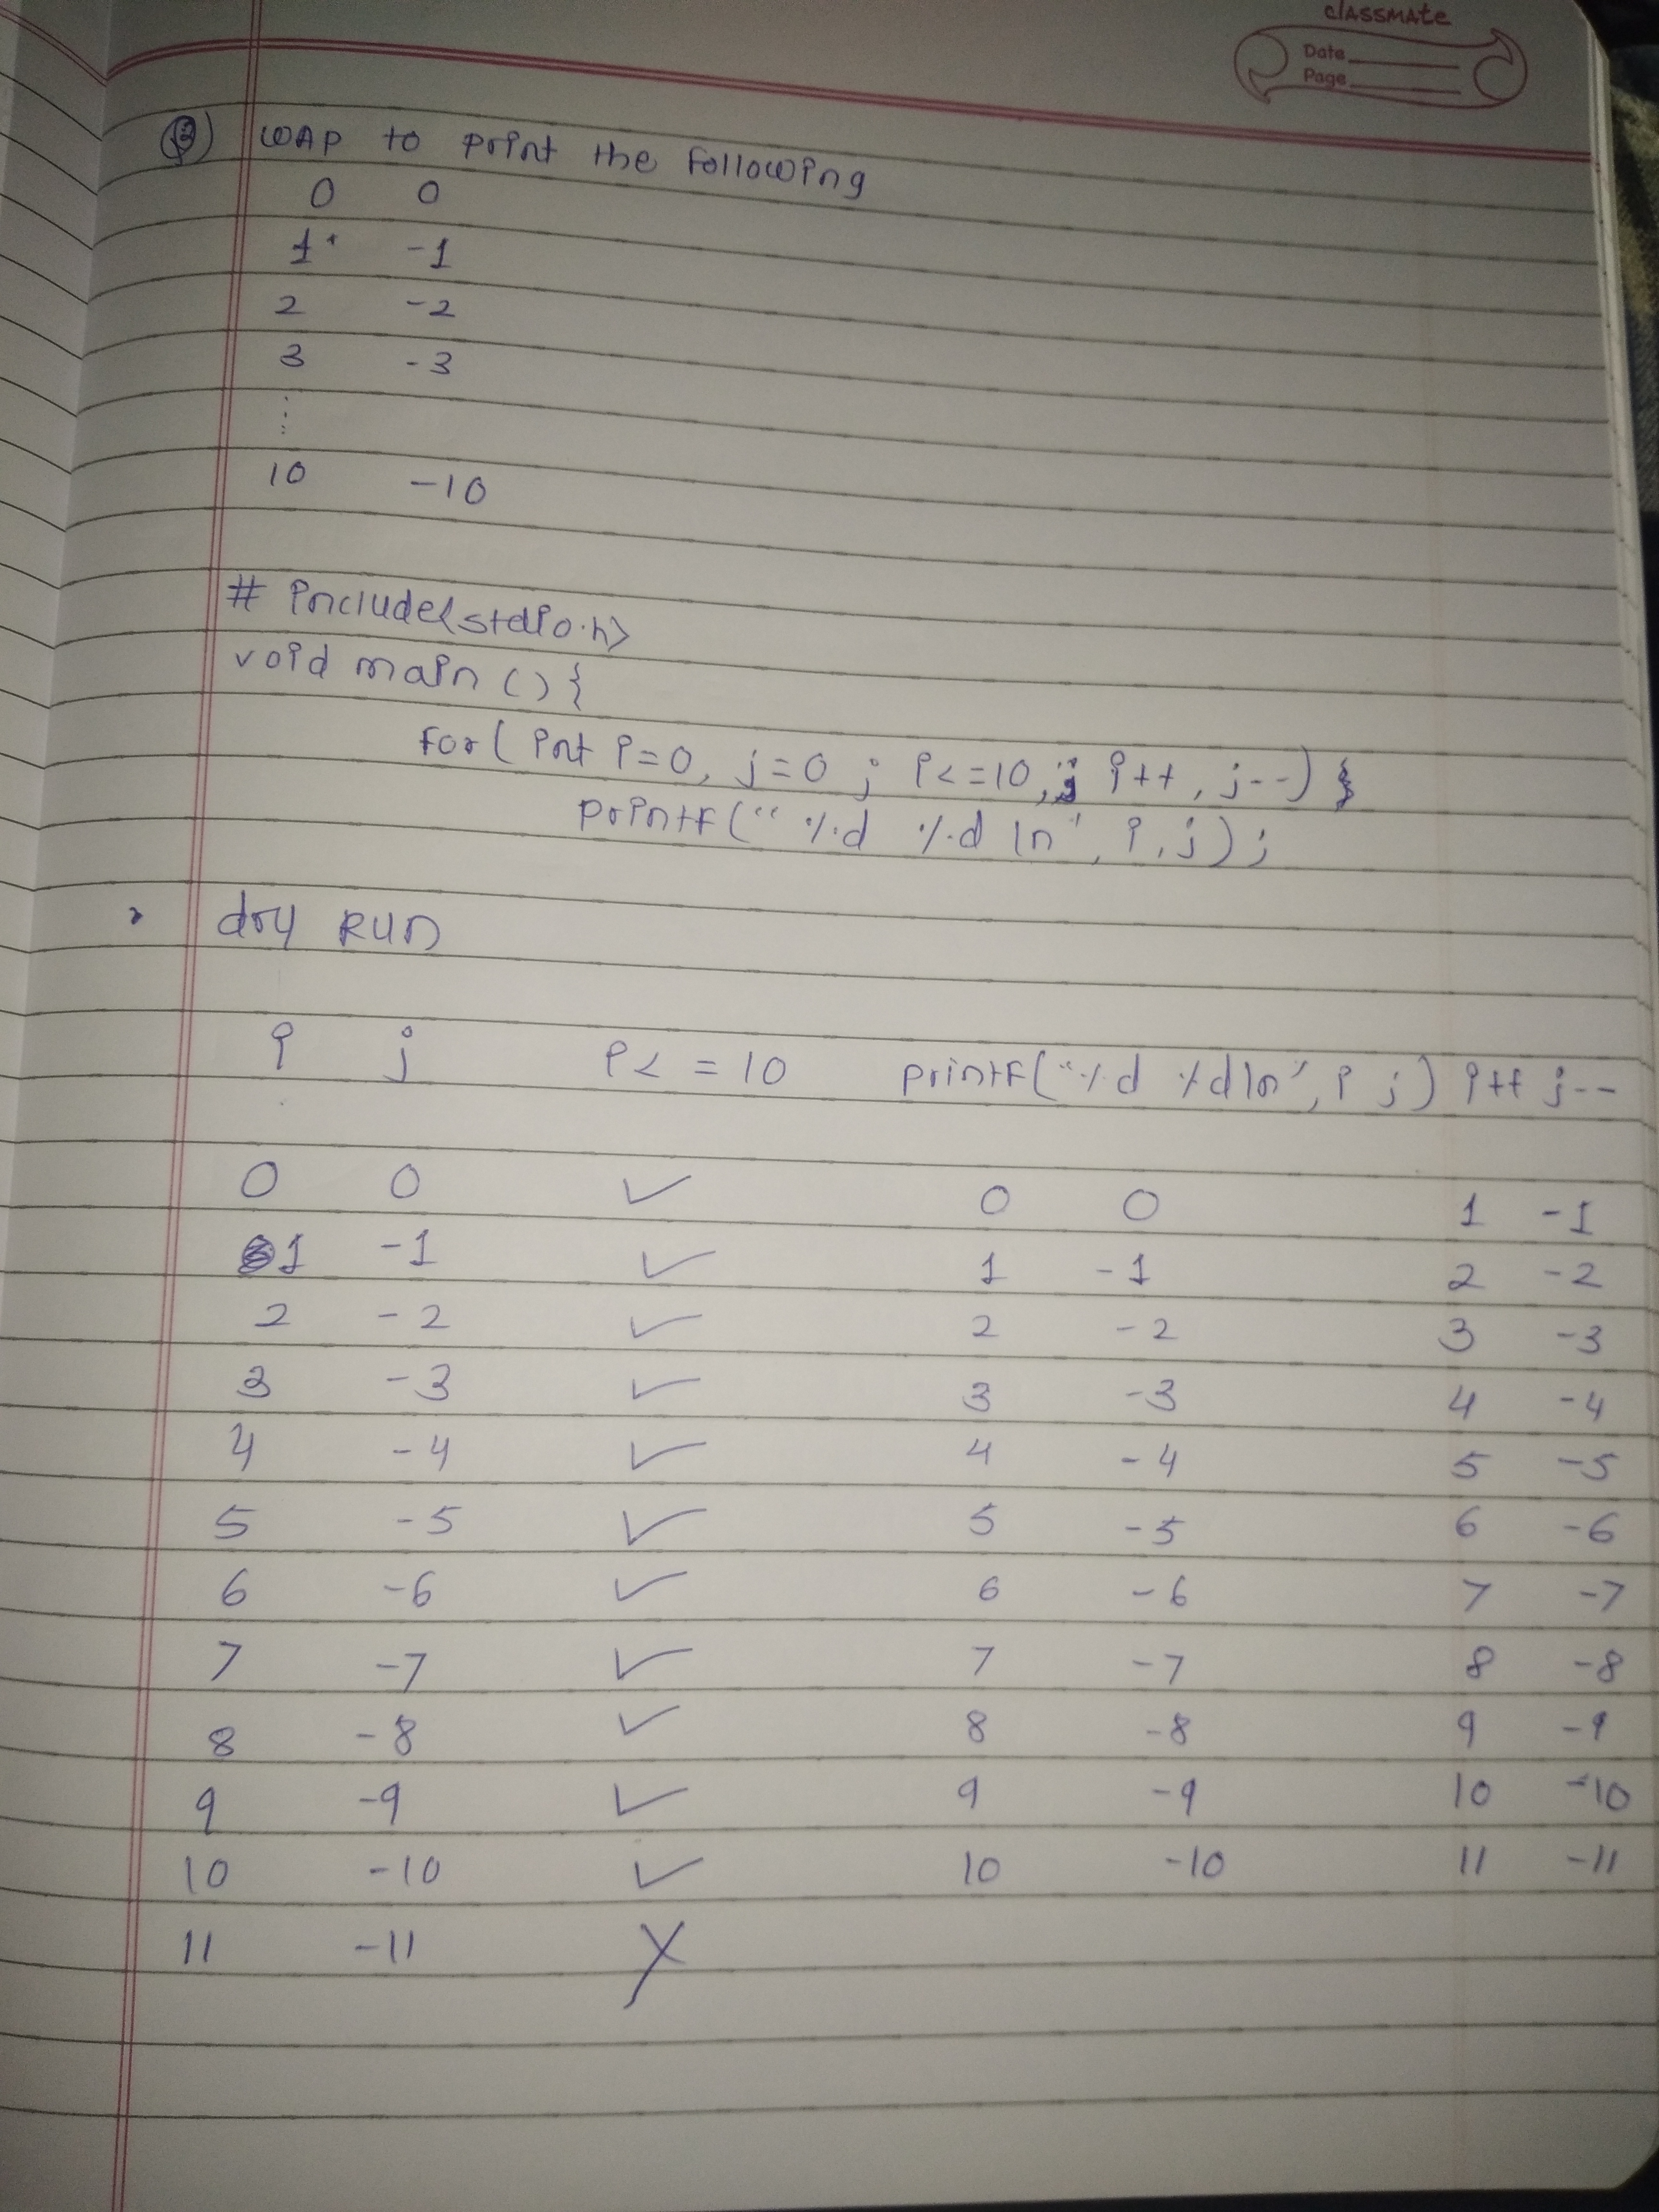 classmate
Date
Page
Q) WAP to print the following
0 0
1 -1
2 -2
3 -3
⋮
10 -10
# include<stdio.h>
void main () {
for( int i=0, j=0 ; i<=10 ; i++ , j--) {
printf(" %d %d \n", i, j) ;
dry RUN
i j i< = 10 printf("%d %d\n", i j) i++ j--
0 0 ✓ 0 0 1 -1
1 -1 ✓ 1 -1 2 -2
2 -2 ✓ 2 -2 3 -3
3 -3 ✓ 3 -3 4 -4
4 -4 ✓ 4 -4 5 -5
5 -5 ✓ 5 -5 6 -6
6 -6 ✓ 6 -6 7 -7
7 -7 ✓ 7 -7 8 -8
8 -8 ✓ 8 -8 9 -9
9 -9 ✓ 9 -9 10 -10
10 -10 ✓ 10 -10 11 -11
11 -11 X